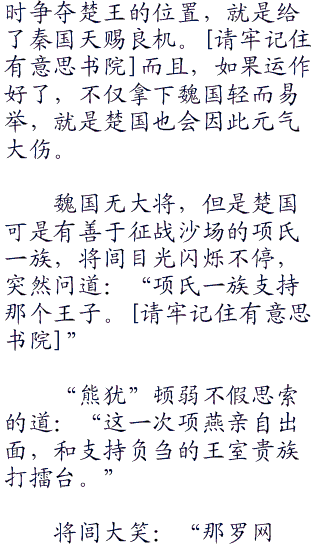 时争夺楚王的位置，就是给
了秦国天赐良机。[请牢记住
有意思书院]而且，如果运作
好了，不仅拿下魏国轻而易
举，就是楚国也会因此元气
大伤。
魏国无大将，但是楚国
可是有善于征战沙场的项氏
一族，将闾目光闪烁不停，
突然问道：“项氏一族支持
那个王子。[请牢记住有意思
书院]”
“熊犹”顿弱不假思索
的道：“这一次项燕亲自出
面，和支持负刍的王室贵族
打擂台。”
将闾大笑：“那罗网